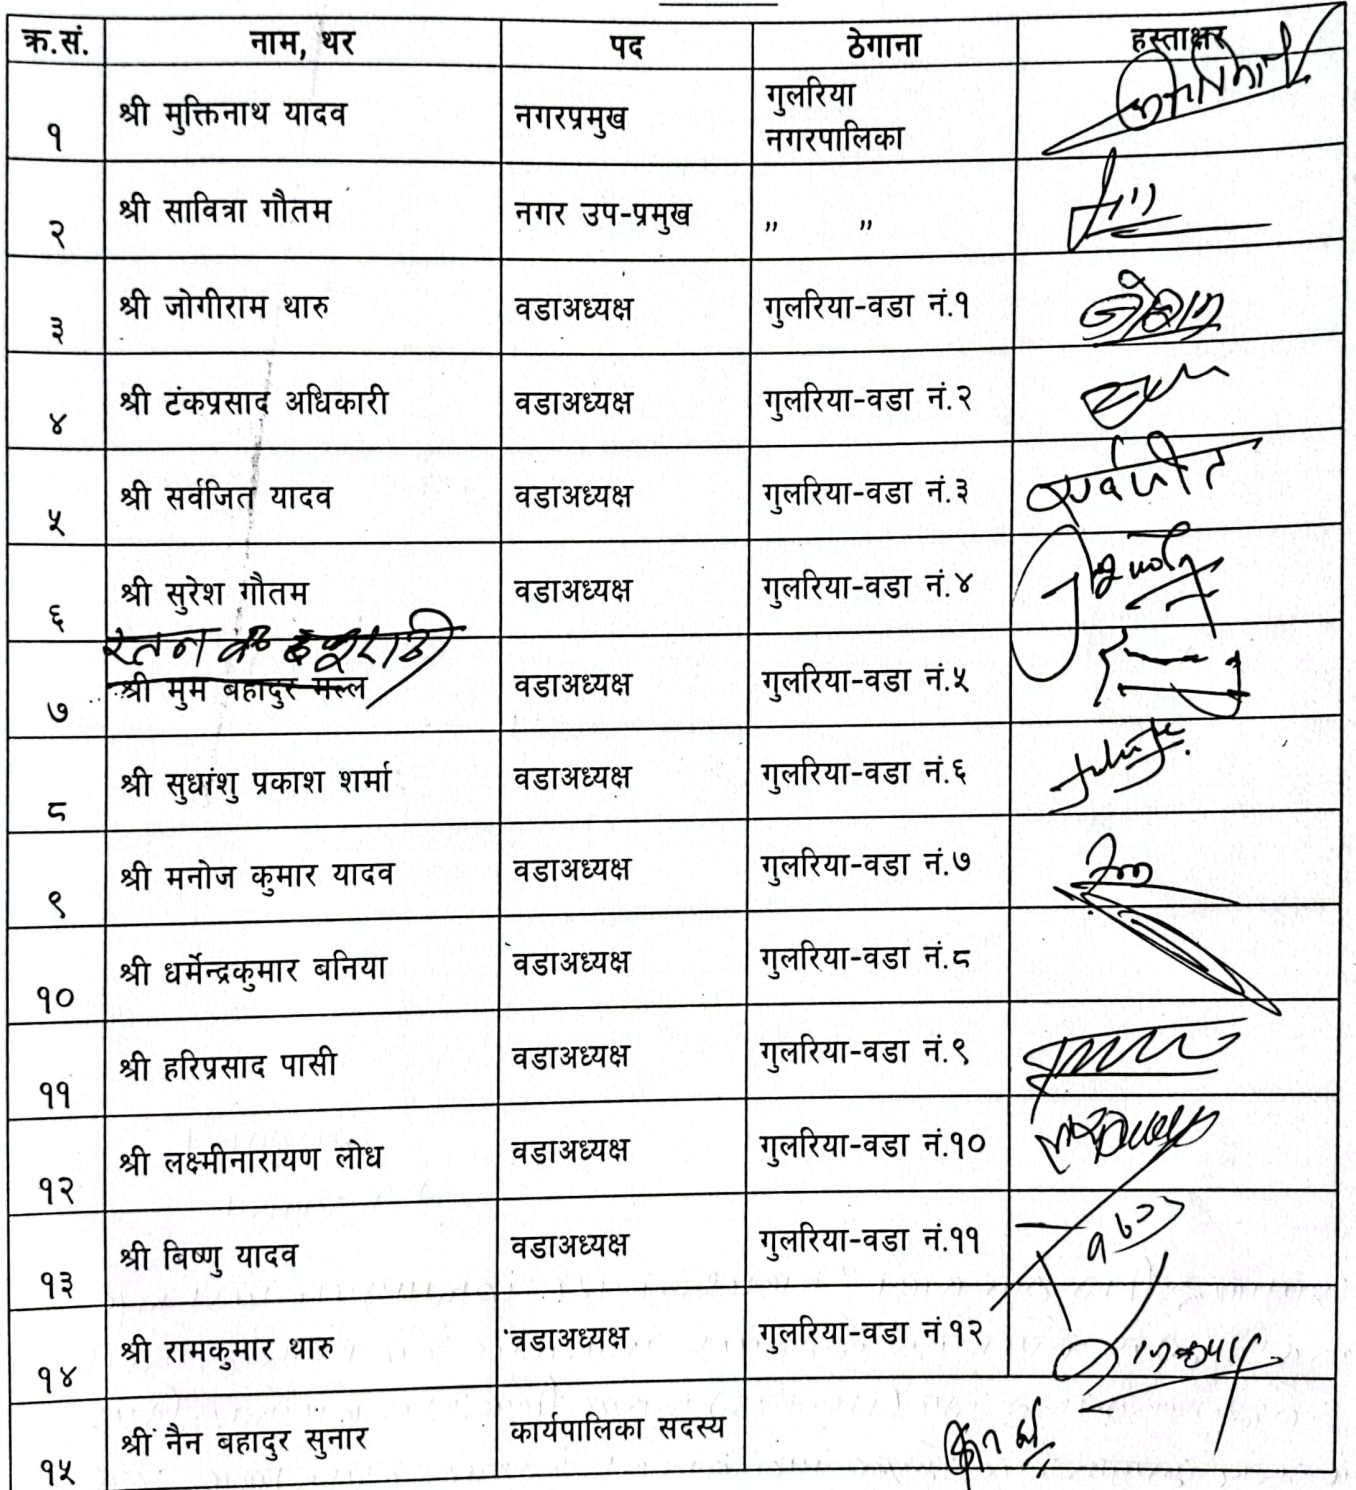 क्र.सं. नाम, थर पद ठेगाना हस्ताक्षर
१ श्री मुक्तिनाथ यादव नगरप्रमुख गुलरिया
नगरपालिका
२ श्री सावित्रा गौतम नगर उप-प्रमुख ,, ,,
३ श्री जोगीराम थारु वडाअध्यक्ष गुलरिया-वडा नं.१
४ श्री टंकप्रसाद अधिकारी वडाअध्यक्ष गुलरिया-वडा नं.२
५ श्री सर्वजित यादव वडाअध्यक्ष गुलरिया-वडा नं.३ सर्वजीत
६ श्री सुरेश गौतम वडाअध्यक्ष गुलरिया-वडा नं.४
७ श्री मुम बहादुर मल्ल वडाअध्यक्ष गुलरिया-वडा नं.५
८ श्री सुधांशु प्रकाश शर्मा वडाअध्यक्ष गुलरिया-वडा नं.६
९ श्री मनोज कुमार यादव वडाअध्यक्ष गुलरिया-वडा नं.७
१० श्री धर्मेन्द्रकुमार बनिया वडाअध्यक्ष गुलरिया-वडा नं.८
११ श्री हरिप्रसाद पासी वडाअध्यक्ष गुलरिया-वडा नं.९
१२ श्री लक्ष्मीनारायण लोध वडाअध्यक्ष गुलरिया-वडा नं.१०
१३ श्री बिष्णु यादव वडाअध्यक्ष गुलरिया-वडा नं.११
१४ श्री रामकुमार थारु वडाअध्यक्ष गुलरिया-वडा नं १२
१५ श्री नैन बहादुर सुनार कार्यपालिका सदस्य